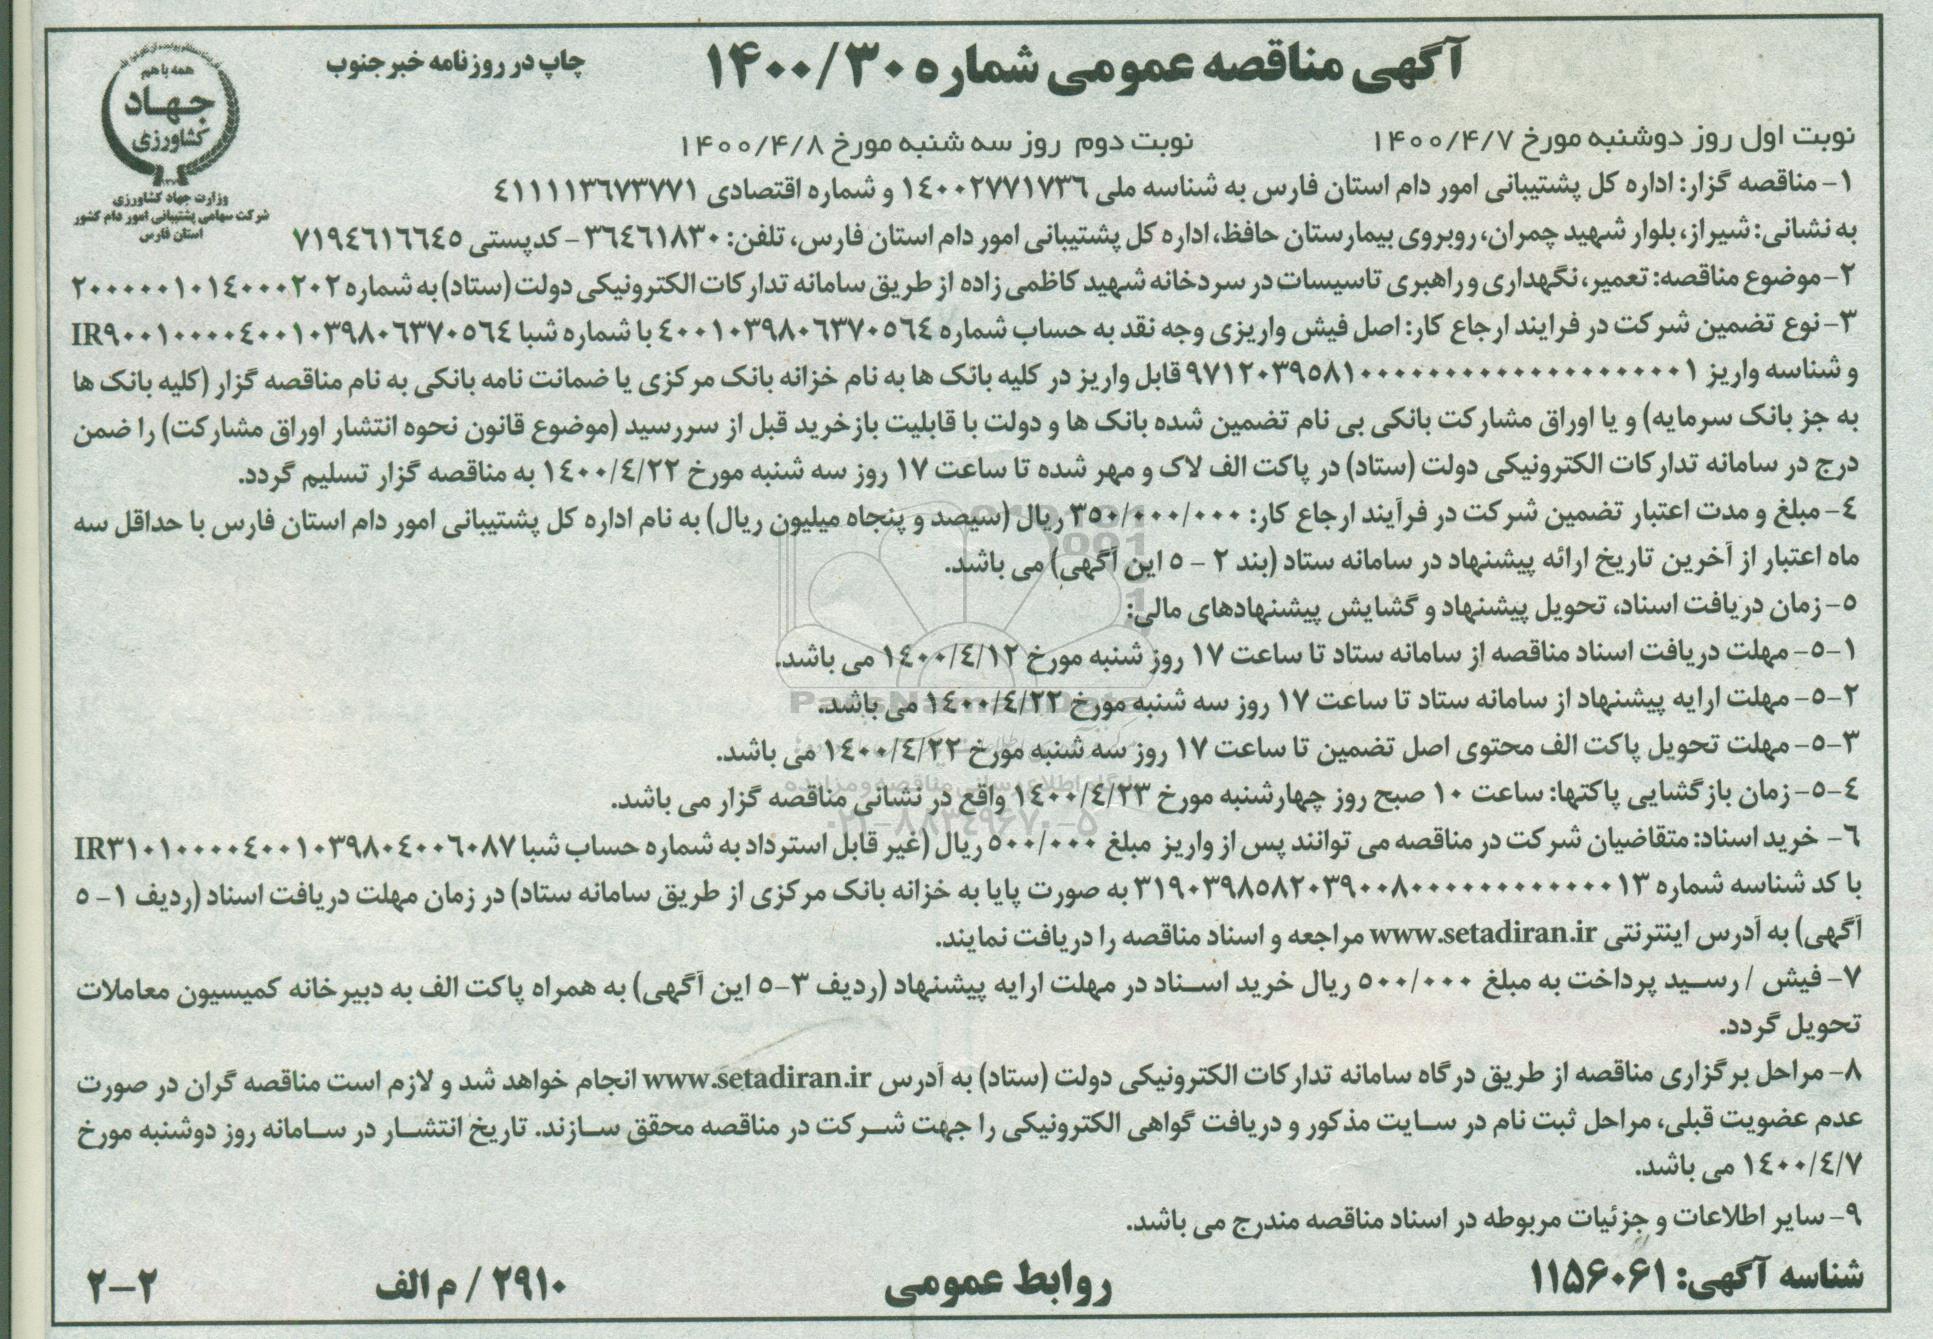 آگهی مناقصه عمومی شماره ۱۴۰۰/۳۰
چاپ در روزنامه خبر جنوب
همه با هم
جهاد
کشاورزی
وزارت جهاد کشاورزی
شرکت سهامی پشتیبانی امور دام کشور
استان فارس
نوبت اول روز دوشنبه مورخ ۱۴۰۰/۴/۷ نوبت دوم روز سه شنبه مورخ ۱۴۰۰/۴/۸
۱- مناقصه گزار: اداره کل پشتیبانی امور دام استان فارس به شناسه ملی ۱۴۰۰۲۷۷۱۷۳۶ و شماره اقتصادی ۴۱۱۱۱۳۶۷۳۷۷۱
به نشانی: شیراز، بلوار شهید چمران، روبروی بیمارستان حافظ، اداره کل پشتیبانی امور دام استان فارس، تلفن: ۳۶۴۶۱۸۳۰ - کدپستی ۷۱۹۴۶۱۶۶۴۵
۲- موضوع مناقصه: تعمیر، نگهداری و راهبری تاسیسات در سردخانه شهید کاظمی زاده از طریق سامانه تدارکات الکترونیکی دولت (ستاد) به شماره ۲۰۰۰۰۰۱۰۱۴۰۰۰۲۰۲
۳- نوع تضمین شرکت در فرایند ارجاع کار: اصل فیش واریزی وجه نقد به حساب شماره ۴۰۰۱۰۳۹۸۰۶۳۷۰۵۶۴ با شماره شبا IR۹۰۰۱۰۰۰۰۴۰۰۱۰۳۹۸۰۶۳۷۰۵۶۴
و شناسه واریز قابل واریز در کلیه بانک ها به نام خزانه بانک مرکزی یا ضمانت نامه بانکی به نام مناقصه گزار (کلیه بانک ها
به جز بانک سرمایه) و یا اوراق مشارکت بانکی بی نام تضمین شده بانک ها و دولت با قابلیت بازخرید قبل از سررسید (موضوع قانون نحوه انتشار اوراق مشارکت) را ضمن
درج در سامانه تدارکات الکترونیکی دولت (ستاد) در پاکت الف لاک و مهر شده تا ساعت ۱۷ روز سه شنبه مورخ ۱۴۰۰/۴/۲۲ به مناقصه گزار تسلیم گردد.
۴- مبلغ و مدت اعتبار تضمین شرکت در فرآیند ارجاع کار: ۳۵۰/۰۰۰/۰۰۰ ریال (سیصد و پنجاه میلیون ریال) به نام اداره کل پشتیبانی امور دام استان فارس با حداقل سه
ماه اعتبار از آخرین تاریخ ارائه پیشنهاد در سامانه ستاد (بند ۲ - ۵ این آگهی) می باشد.
۵- زمان دریافت اسناد، تحویل پیشنهاد و گشایش پیشنهادهای مالی:
۱-۵- مهلت دریافت اسناد مناقصه از سامانه ستاد تا ساعت ۱۷ روز شنبه مورخ ۱۴۰۰/۴/۱۲ می باشد.
۲-۵- مهلت ارایه پیشنهاد از سامانه ستاد تا ساعت ۱۷ روز سه شنبه مورخ ۱۴۰۰/۴/۲۲ می باشد.
۳-۵- مهلت تحویل پاکت الف محتوی اصل تضمین تا ساعت ۱۷ روز سه شنبه مورخ ۱۴۰۰/۴/۲۲ می باشد.
۴-۵- زمان بازگشایی پاکتها: ساعت ۱۰ صبح روز چهارشنبه مورخ ۱۴۰۰/۴/۲۳ واقع در نشانی مناقصه گزار می باشد.
۶- خرید اسناد: متقاضیان شرکت در مناقصه می توانند پس از واریز مبلغ ۵۰۰/۰۰۰ ریال (غیر قابل استرداد به شماره حساب شبا IR۳۱۰۱۰۰۰۰۴۰۰۱۰۳۹۸۰۴۰۰۶۰۸۷
با کد شناسه شماره به صورت پایا به خزانه بانک مرکزی از طریق سامانه ستاد) در زمان مهلت دریافت اسناد (ردیف ۱- ۵
آگهی) به آدرس اینترنتی www.setadiran.ir مراجعه و اسناد مناقصه را دریافت نمایند.
۷- فیش / رسید پرداخت به مبلغ ۵۰۰/۰۰۰ ریال خرید اسناد در مهلت ارایه پیشنهاد (ردیف ۳-۵ این آگهی) به همراه پاکت الف به دبیرخانه کمیسیون معاملات
تحویل گردد.
۸- مراحل برگزاری مناقصه از طریق درگاه سامانه تدارکات الکترونیکی دولت (ستاد) به آدرس www.setadiran.ir انجام خواهد شد و لازم است مناقصه گران در صورت
عدم عضویت قبلی، مراحل ثبت نام در سایت مذکور و دریافت گواهی الکترونیکی را جهت شرکت در مناقصه محقق سازند. تاریخ انتشار در سامانه روز دوشنبه مورخ
۱۴۰۰/۴/۷ می باشد.
۹- سایر اطلاعات و جزئیات مربوطه در اسناد مناقصه مندرج می باشد.
شناسه آگهی: ۱۱۵۶۰۶۱ روابط عمومی ۲۹۱۰ / م الف ۲-۲
ParsNamadData
پایگاه اطلاع رسانی مناقصه و مزایده
۰۲۱-۸۸۳۴۹۶۷۰-۵